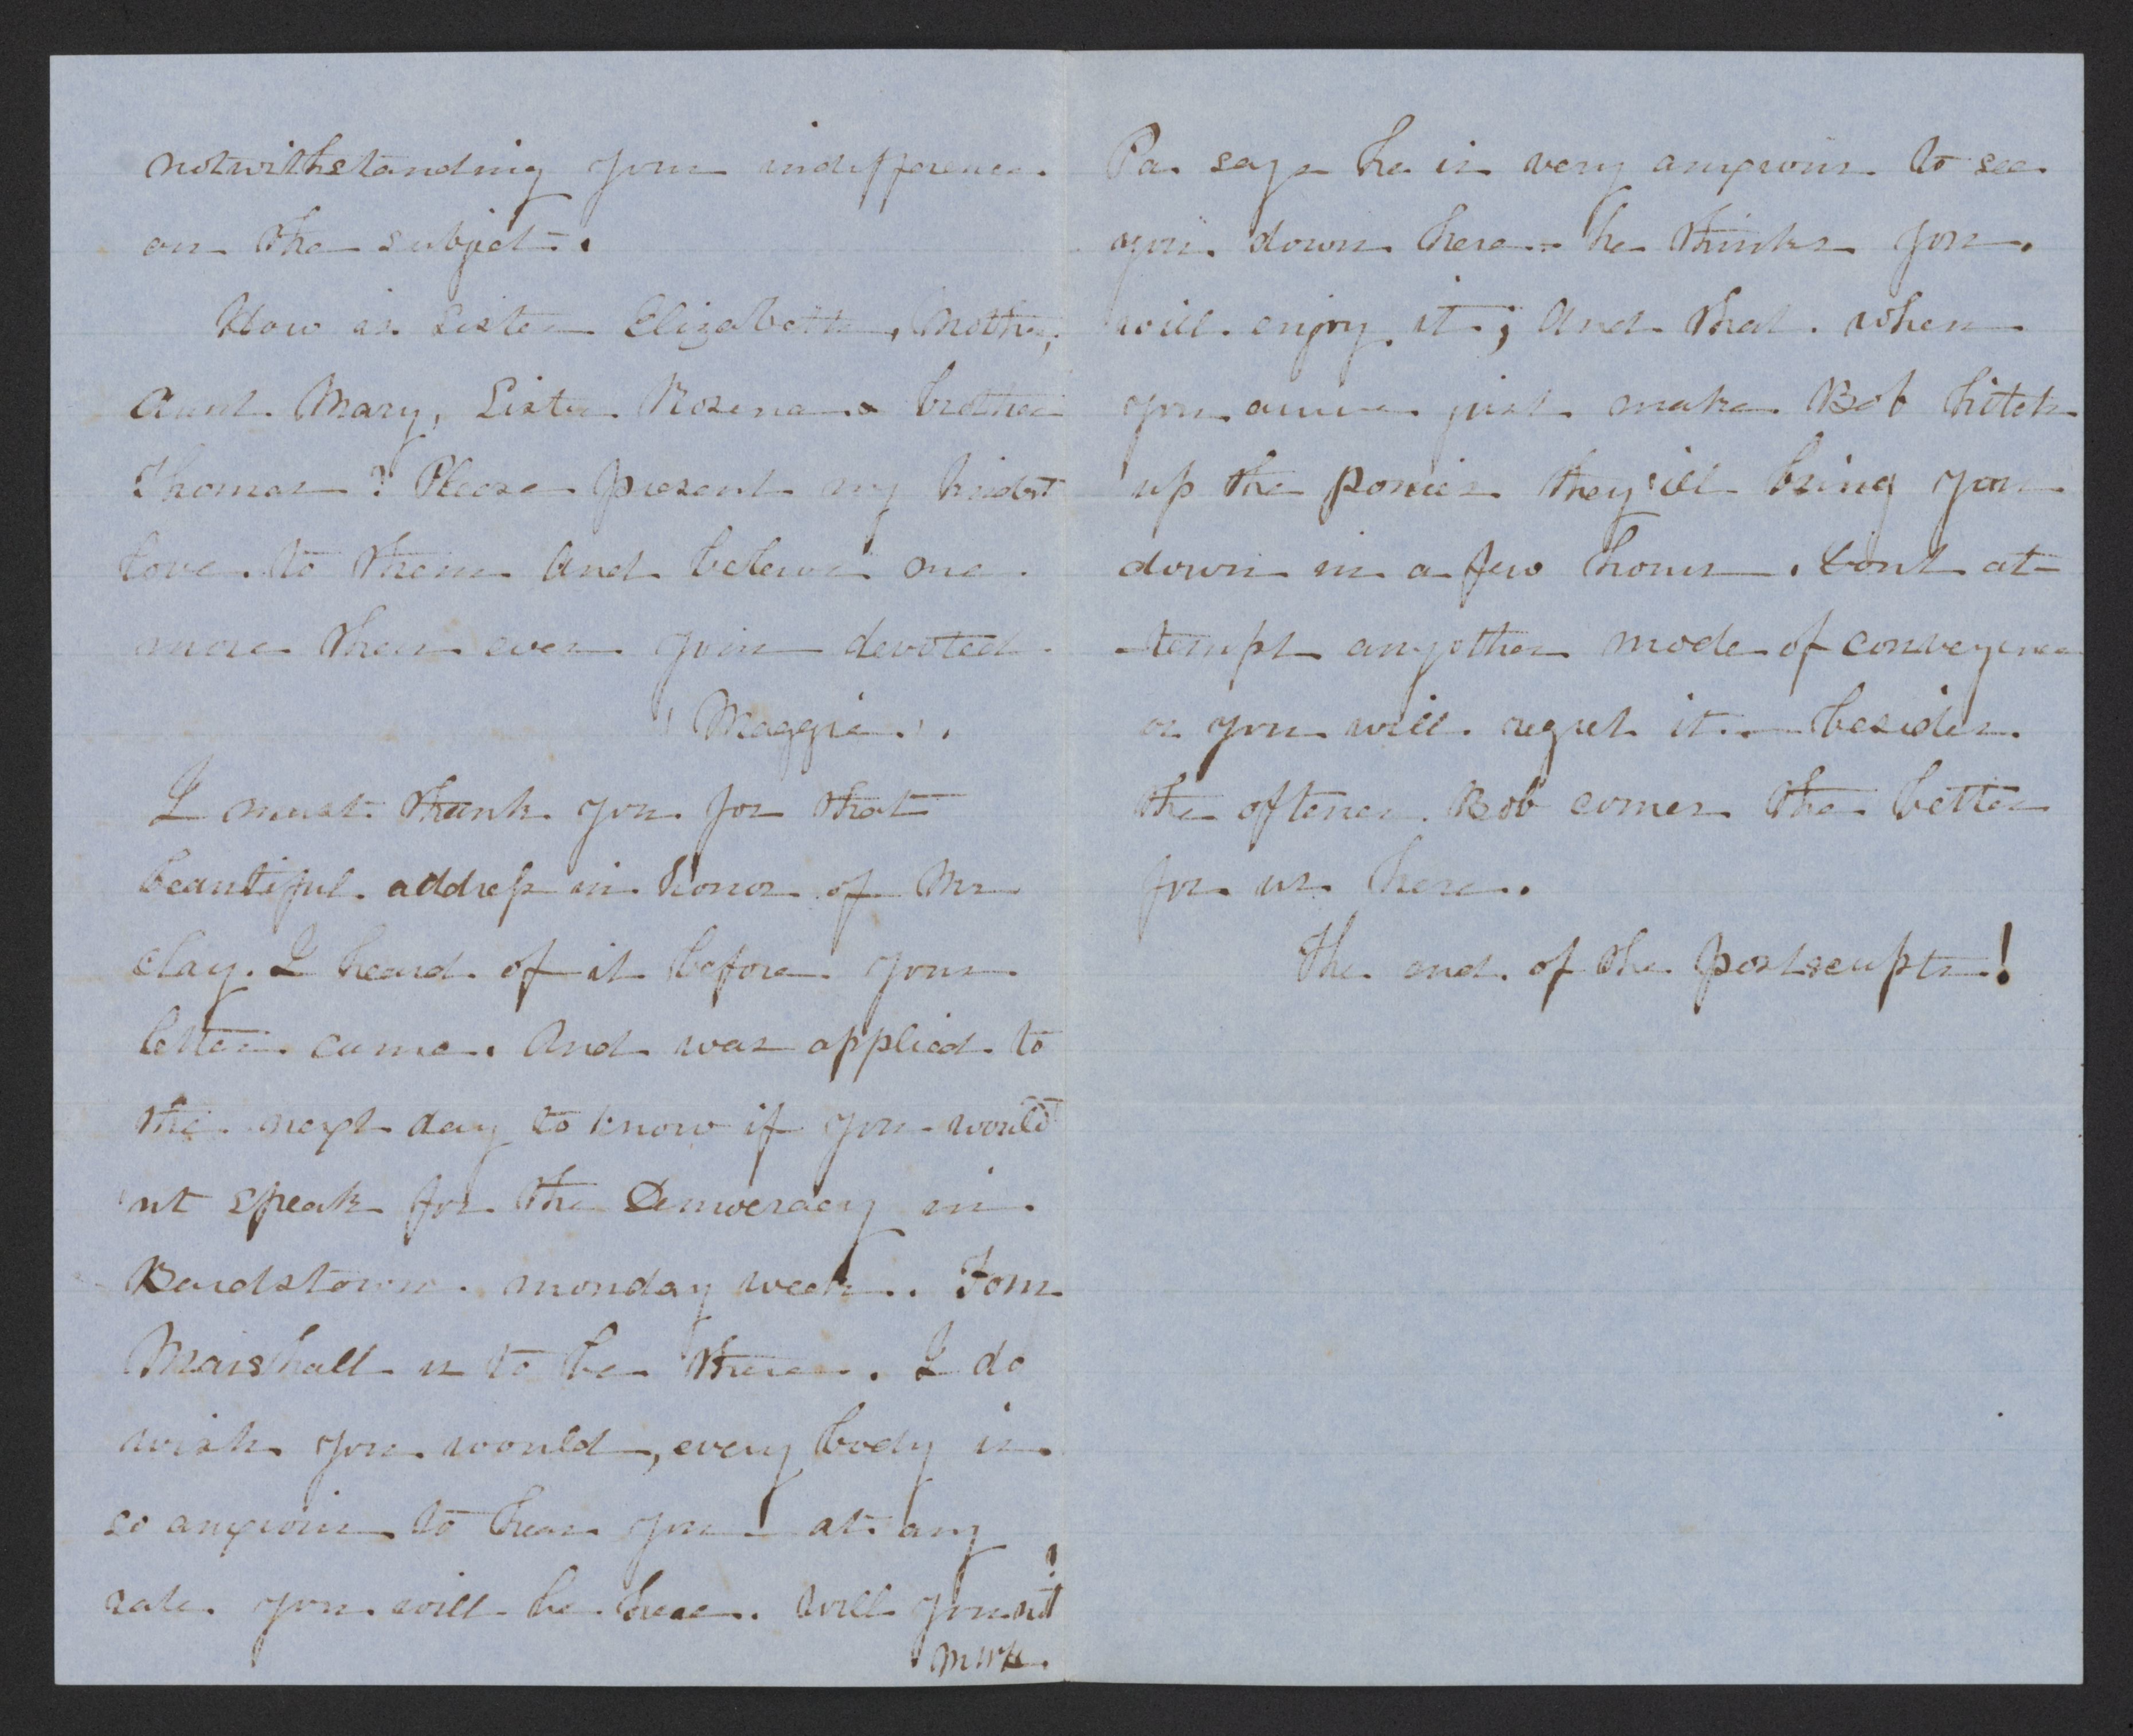 notwithstanding your indifference
on the subject.
How is Sister Elizabeth, Mother,
Aunt Mary, Sister Rosena & brother
Thomas? Please present my kindest
love to them and believe me
more than ever your devoted
"Maggie".
I must thank you for that
beautiful address in honor of Mr
Clay. I heard of it before your
letter came. And was applied to
the next day to know if you would
nt speak for the Democracy in
Bardstown monday week. Tom
Marshall is to be there. I do
wish you would, every body is
so anxious to hear you – at any
rate you will be here. Will you nt?
Pa says he is very anxious to see
you down here – he thinks you
will enjoy it; And that when
you arrive just make Bob hitch
up the ponies they'ill bring you
down in a few hours. Dont at-
-tempt anyother mode of conveyence
or you will regret it – besides
the oftener Bob comes the better
for us here.
The end of the postscripts!